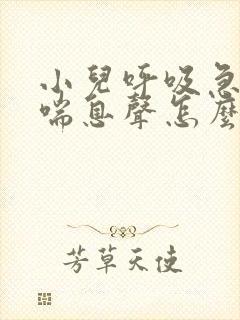 小兒呼吸急
喘息聲怎麼
芳草天使